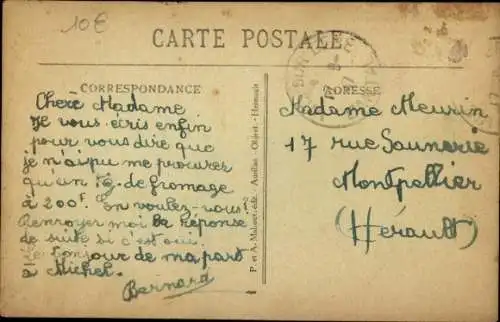 10€
CARTE POSTALE
CORRESPONDANCE
Chère Madame
Je vous écris enfin
pour vous dire que
je n'ai pu me procurer
qu'un Kg. de fromage
à 200f. En voulez-vous?
Renvoyer moi la réponse
de suite si c'est oui.
Le bonjour de ma part
à Michel.
Bernard
P. et A. edit. - Aurillac
ADRESSE
Madame Meurin
17 rue Saunerie
Montpellier
(Hérault)